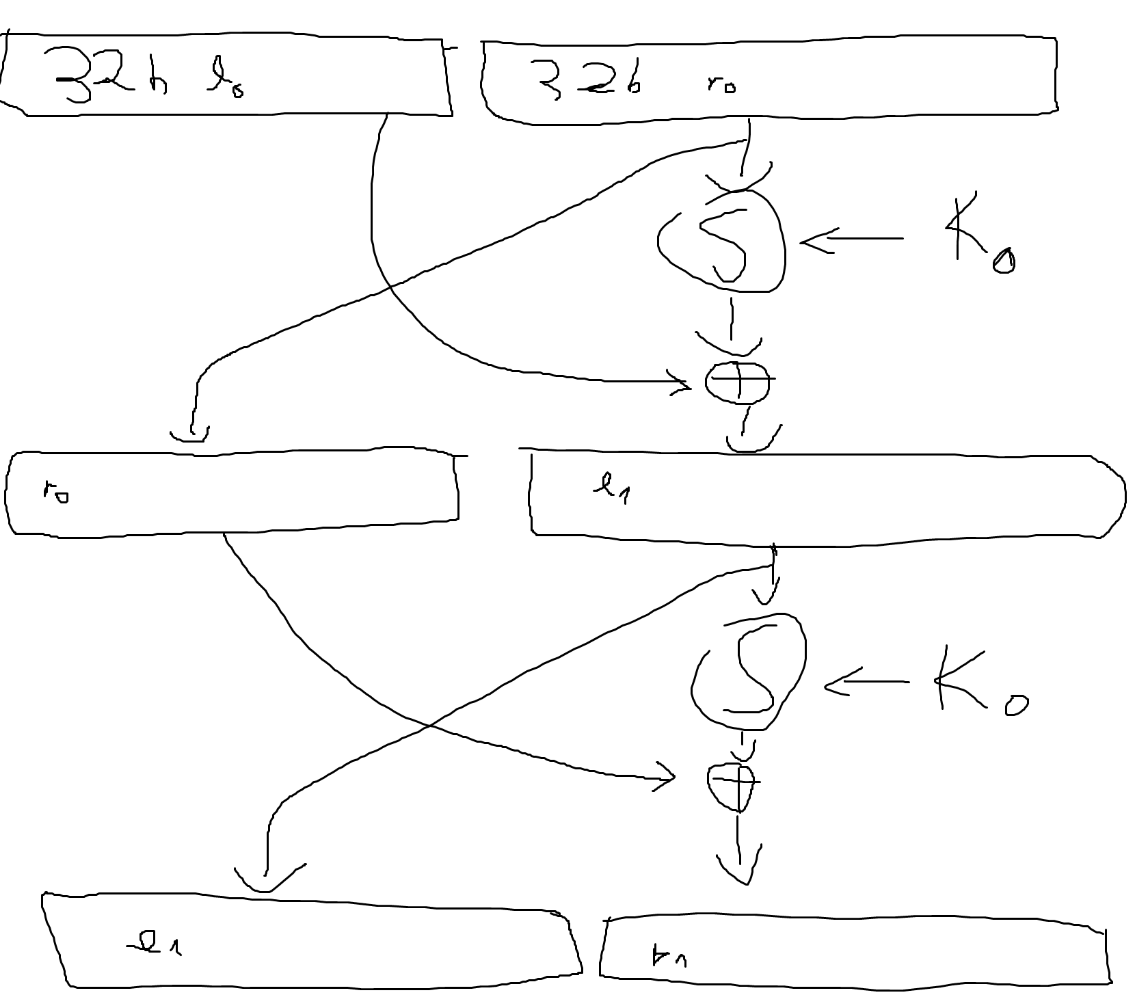 32b l₀ 32b r₀
S ← K₀
⊕
r₀ l₁
S ← K₀
⊕
l₁ r₁